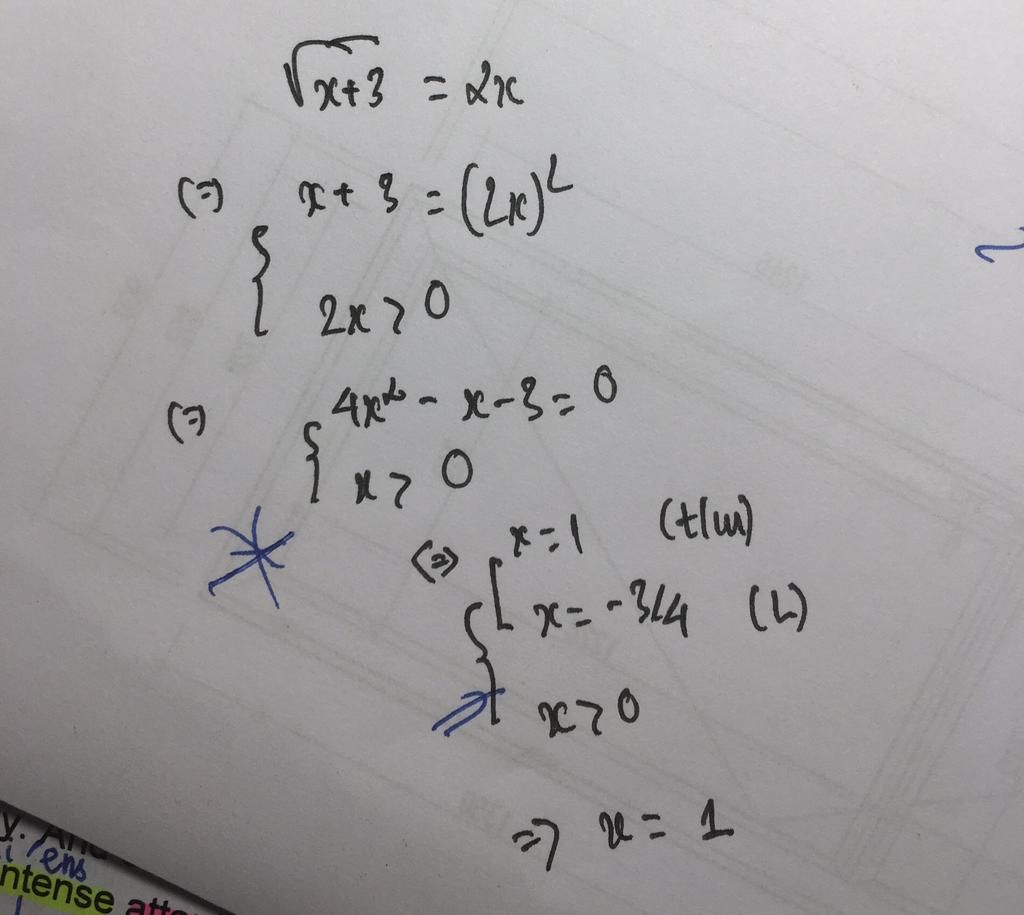 √x+3 = 2x
(=) { x + 3 = (2x)²
2x > 0
(=) { 4x² - x - 3 = 0
x > 0
(=) { [ x = 1 (t/m)
x = -3/4 (L)
x > 0
=> x = 1
y. And
ens
ntense atte